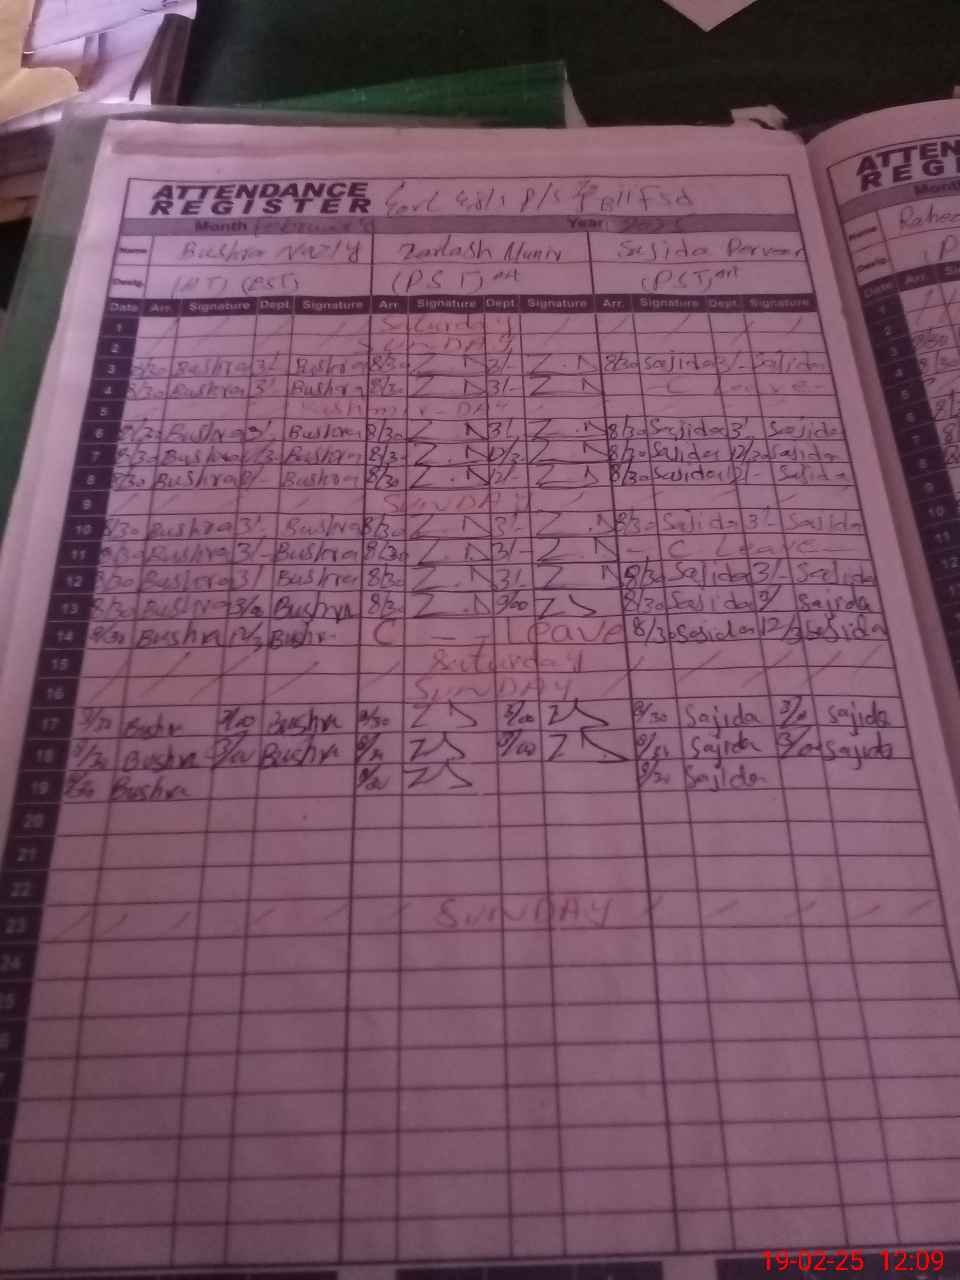 ATTENDANCE
REGISTER
Govt Girls P/S Bll Fsd
Month February Year 2025
Name Bushra Nazly Zarlash Munir Sajida Perveen
Desig. (PST) (PST)
Date Arr. Signature Dept. Signature Arr. Signature Dept. Signature Arr. Signature Dept. Signature
1 Saturday
2 SUNDAY
3 8/30 Bushra 3/- Bushra 8/30 Z.N 3/- Z.N 8/30 Sajida 3/- Sajida
4 8/30 Bushra 3/ Bushra 8/30 Z.N 3/- Z.N - C Leave -
5 Kashmir - DAY
6 8/30 Bushra 3/ Bushra 8/30 Z.N 3/ Z.N 8/30 Sajida 3/ Sajida
7 8/30 Bushra Bushra 8/30 Z.N Z.N 8/30 Sajida 12/30 Sajida
8 8/30 Bushra Bushra 8/30 Z.N 2/- Z.N 8/30 Sajida Sajida
9 SUNDAY
10 8/30 Bushra 3/- Bushra 8/30 Z.N 3/- Z.N 8/30 Sajida 3/- Sajida
11 8/30 Bushra 3/- Bushra 8/30 Z.N 3/- Z.N - C Leave -
12 8/30 Bushra 3/ Bushra 8/30 Z.N 3/ Z.N 8/30 Sajida 3/- Sajida
13 8/30 Bushra 3/00 Bushra 8/30 Z.N Z.N 8/30 Sajida 3/ Sajida
14 8/30 Bushra 12/3 Bushr C - - Leave 8/30 Sajida 12/3 Sajida
15 Saturday
16 SUNDAY
17 8/30 Bushra 3/00 Bushra 8/30 ZN 3/00 ZN 8/30 Sajida 3/0 Sajida
18 8/30 Bushra 3/00 Bushra ZN 3/00 ZN Sajida 3/0 Sajida
19 8/30 Bushra 8/30 ZN 8/30 Sajida
20
21
22
23 SUNDAY
24
ATTEN
REG
Month
Name Rahee
Desig. (P
Date Arr. Sign
1
2
3
4
5
6
7
8
9
10
11
12
19-02-25 12:09